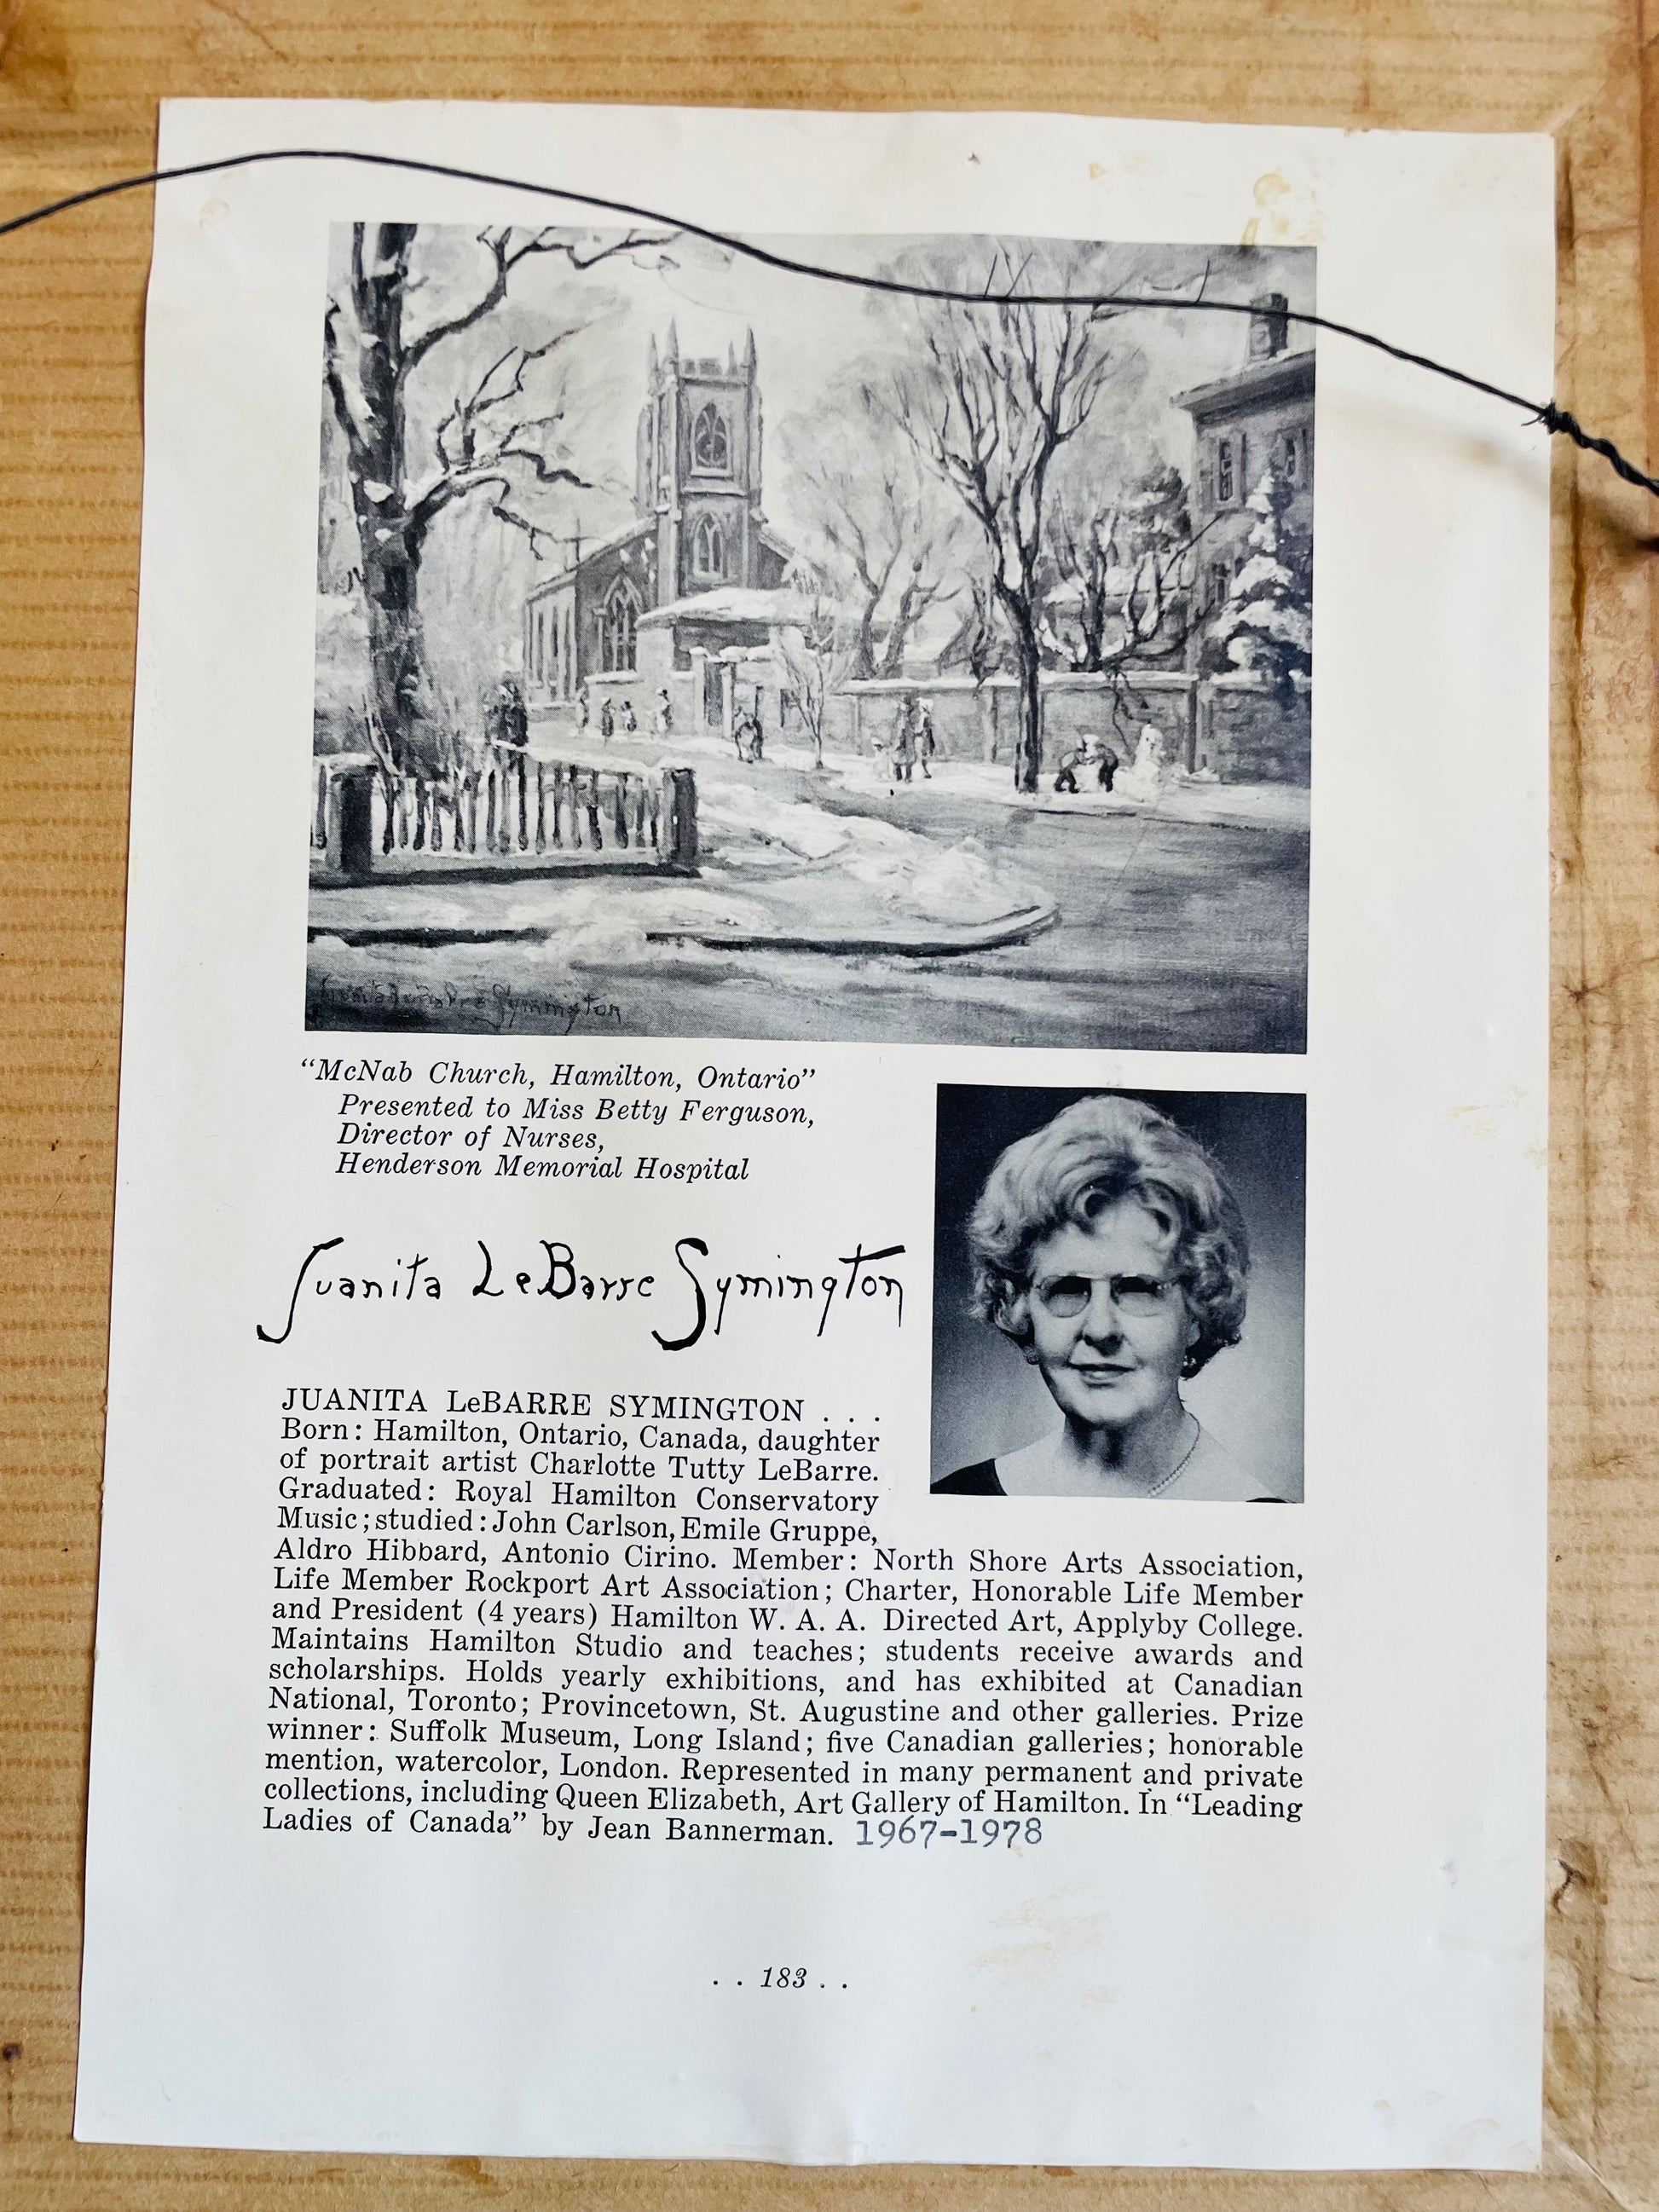 Juanita LeBarre Symington
“McNab Church, Hamilton, Ontario”
Presented to Miss Betty Ferguson,
Director of Nurses,
Henderson Memorial Hospital
Juanita LeBarre Symington
JUANITA LeBARRE SYMINGTON . . .
Born: Hamilton, Ontario, Canada, daughter
of portrait artist Charlotte Tutty LeBarre.
Graduated: Royal Hamilton Conservatory
Music; studied: John Carlson, Emile Gruppe,
Aldro Hibbard, Antonio Cirino. Member: North Shore Arts Association,
Life Member Rockport Art Association; Charter, Honorable Life Member
and President (4 years) Hamilton W. A. A. Directed Art, Applyby College.
Maintains Hamilton Studio and teaches; students receive awards and
scholarships. Holds yearly exhibitions, and has exhibited at Canadian
National, Toronto; Provincetown, St. Augustine and other galleries. Prize
winner: Suffolk Museum, Long Island; five Canadian galleries; honorable
mention, watercolor, London. Represented in many permanent and private
collections, including Queen Elizabeth, Art Gallery of Hamilton. In “Leading
Ladies of Canada” by Jean Bannerman. 1967-1978
. . 183 . .